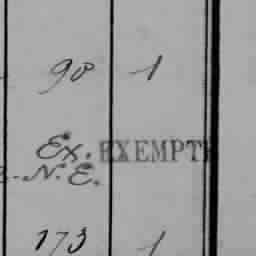 90 1
Ex. EXEMPT
N.E.
173 1